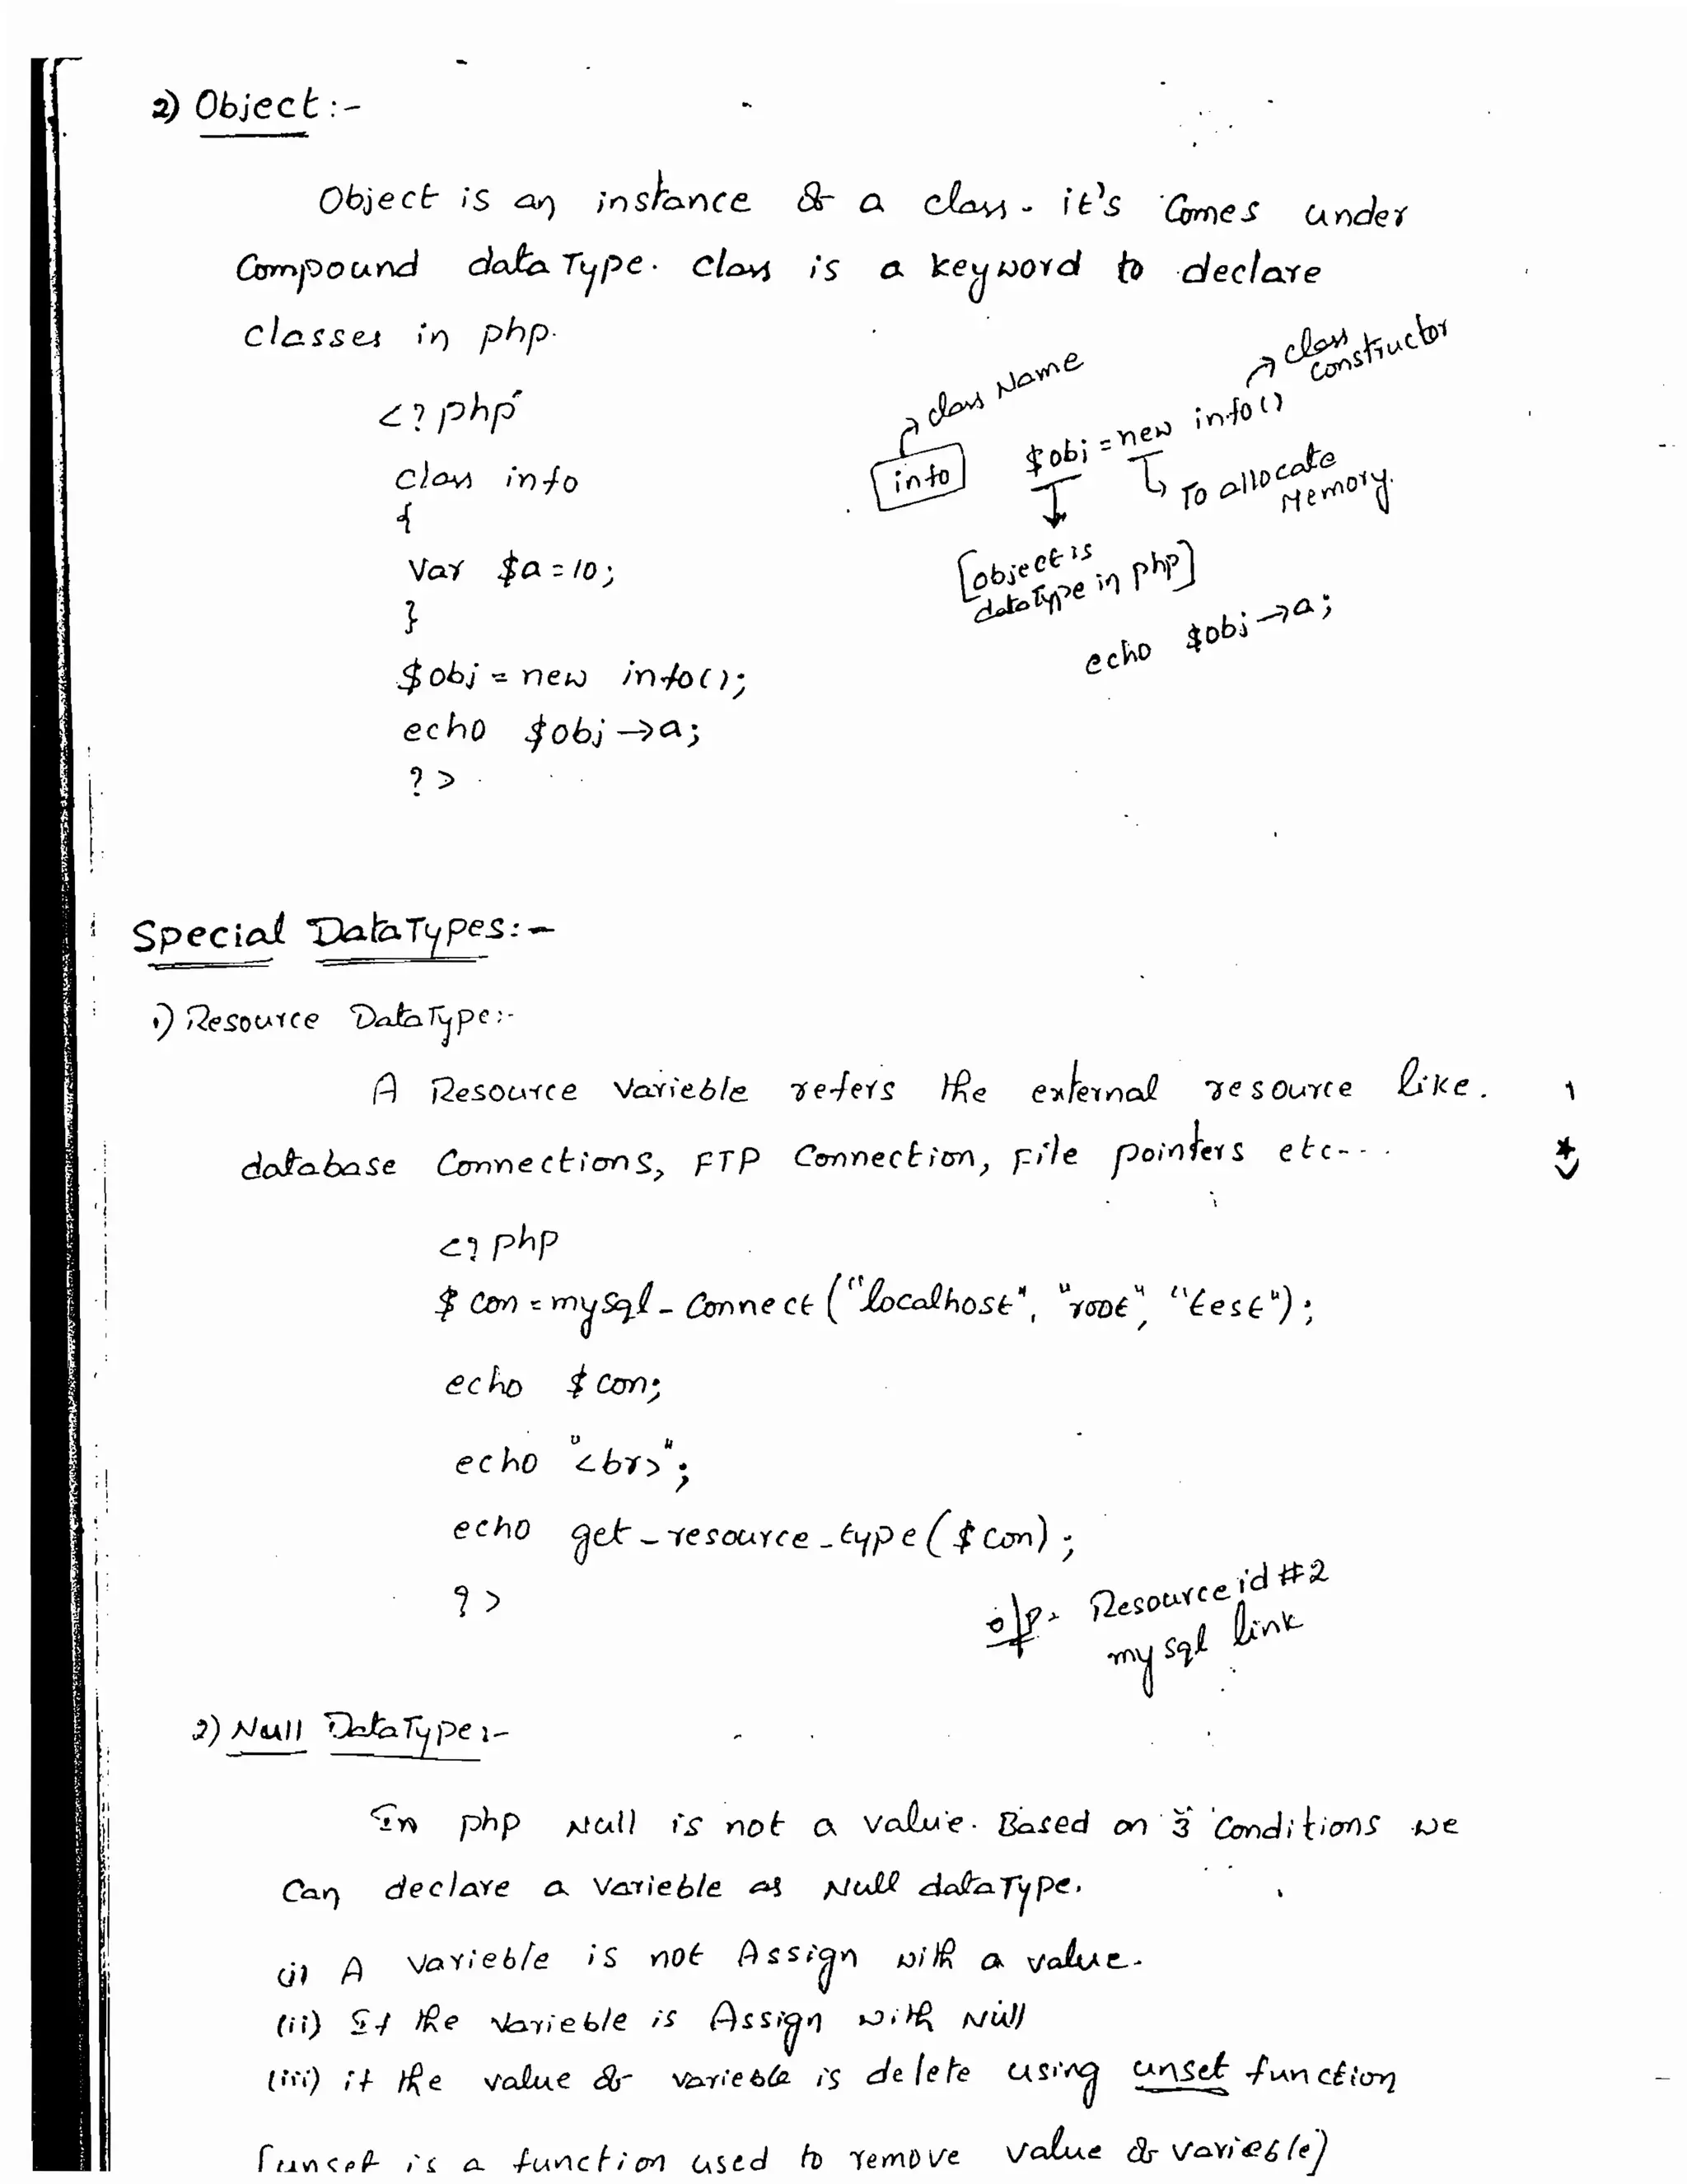 2) Object :-
Object is an instance of a class. it's Comes under
Compound data Type. Class is a keyword to declare
classes in php.
<? php
class info
{
Var $a = 10;
}
$obj = new info();
echo $obj →a;
?>
class Name
info
class constructor
$obj = new info()
To allocate Memory.
[object is
dataType in php]
echo $obj →a;
Special DataTypes :-
1) Resource DataType:-
A Resource Varieble refers the external resource like.
database Connections, FTP Connection, File pointers etc---.
<? php
$ con = mysql - Connect ("localhost", "root", "test");
echo $ con;
echo "<br>";
echo get - resource - type ($ con);
?>
o/p:- Resource id #2
mysql link
2) Null DataType :-
In php Null is not a value. Based on 3 Conditions we
Can declare a Varieble as Null dataType.
(i) A Varieble is not Assign with a value.
(ii) If the Varieble is Assign with Null
(iii) if the value of varieble is delete using unset function
[unset is a function used to remove value of varieble]